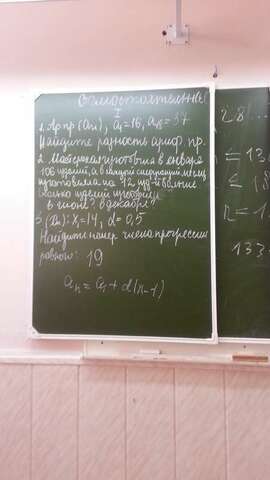 Самостоятельны
I
1. Ар пр (an), a1=16, a8=37
Найдите разность ариф. пр.
2. Мастерская изготовила в январе
106 изделий, а в каждый следующий месяц
изготовляла на 12 изд-й больше
Сколько изделий изготовила
в июне? в декабре?
3. (xn): x1=14, d=0,5
Найдите номер члена прогрессии
равного: 19
an = a1 + d(n-1)
28...
≤ 13
≤ 1
n = 1
133